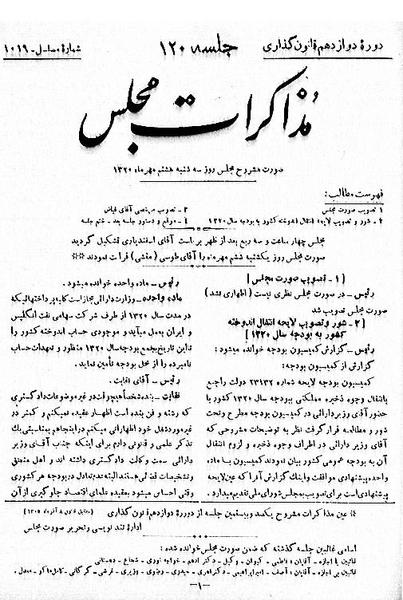 دورهٔ دوازدهم قانون گذاری
جلسه ۱۲۰
شمارهٔ مسلسل - ۱۰۱۹
مذاکرات مجلس
صورت مشروح مجلس روز سه شنبه هشتم مهرماه ۱۳۲۰
فهرست مطالب:
۱ تصویب صورت مجلس
۲ - شور و تصویب لایحه انتقال اندوخته کشور به بودجه سال ۱۳۲۰
۳ - تصویب مرخصی آقای فیاض
۴ - موقع و دستور جلسه بعد - ختم جلسه
مجلس چهار ساعت و سه ربع بعد از ظهر بریاست آقای اسفندیاری تشکیل گردید
صورت مجلس روز یکشنبه ششم مهرماه را آقای طوسی (منشی) قرائت نمودند
[ ۱ - تصویب صورت مجلس ]
رئیس - در صورت مجلس نظری نیست (اظهاری نشد)
صورت مجلس تصویب شد
[ ۲ - شور و تصویب لایحه انتقال اندوخته
کشور به بودجه سال ۱۳۲۰ ]
رئیس - گزارش کمیسیون بودجه خوانده میشود:
گزارش از کمیسیون بودجه:
کمیسیون بودجه لایحه نمره ۲۳۱۳۲ دولت راجع
بانتقال وجوه ذخیره مملکتی ببودجه سال ۱۳۲۰ کشور با
حضور آقای وزیر دارائی در کمیسیون بودجه مطرح و تحت
شور و مطالعه قرار گرفت نظر به توضیحات مشروحی که
آقای وزیر دارائی در اطراف وجوه ذخیره و لزوم انتقال
آن به بودجه عمومی کشور بیان نمودند کمیسیون با ماده
واحده پیشنهادی موافقت و اینک گزارش آنرا که عین لایحه
پیشنهادی است برای تصویب بمجلس شورای ملی تقدیم میدارد.
رئیس - ماده واحده خوانده میشود.
ماده واحده - وزارت دارائی مجاز است کلیه پرداختهائیکه
در مدت سال ۱۳۲۰ از طرف شرکت سهامی نفت انگلیس
و ایران بعمل میآید و موجودی حساب اندوخته کشور را
تا این تاریخ بجمع بودجه سال ۱۳۲۰ منظور و تعهدات حساب
نامبرده را از محل بودجه تأمین نماید.
رئیس - آقای نقابت.
نقابت - بنده شخصاً هیچوقت در غیر موضوعات دادگستری
که رشته و فن بنده است اظهار عقیده نمیکنم و کمتر در
غیر مورد شغل خود اظهاراتی میکنم در اینجا هم بمناسبت یک
تذکر علمی و قانونی دادم برای اینکه جناب آقای وزیر
دارائی سمت وکالت دادگستری داشته اند و اهل منطق
و تشخیصات قضائی هستند البته عدم تعادل در بودجه هر کشوری
وقتی احساس میشود بعقیده علمای اقتصاد جلوگیری از آن
عین مذاکرات مشروح یکصد و بیستمین جلسه از دورهٔ دوازدهم قانون گذاری
ادارهٔ تند نویسی و تحریر صورت مجلس
اسامی غائبین جلسه گذشته که ضمن صورت مجلس خوانده شده:
- ۱ -